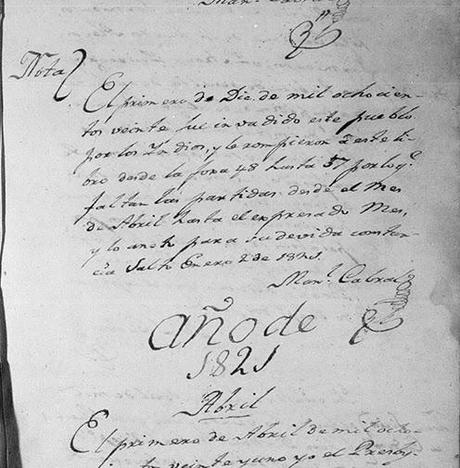 Man.l Cabral
Nota
El primero de Die. de mil ochocien-
tos veinte fue invadido este pueblo
por los Yndios, y le rompieron a este li-
bro desde la foxa 48 hasta 57 por lo q.e
faltan las partidas desde el Mes
de Abril hasta el expresado Mes,
y lo anoto para su devida consten-
cia Salto Enero 2 de 1821.
Man.l Cabral
Año de
1821
Abril
El primero de Abril de mil ocho-
veinte y uno yo el Presby-